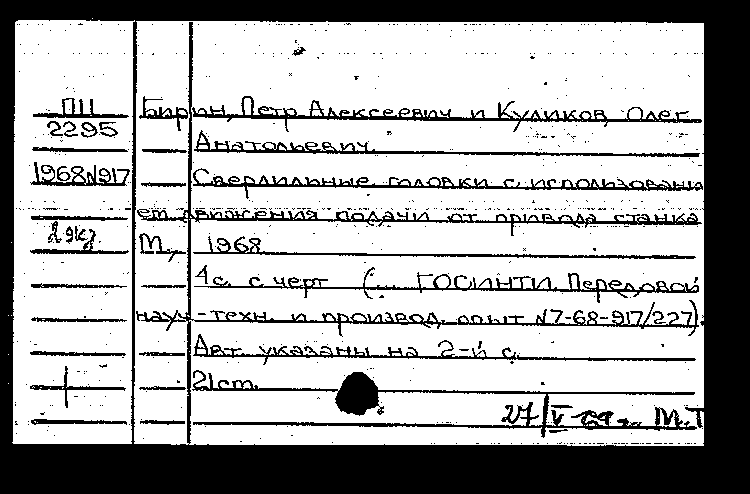 ПЦ Бирин, Петр Алексеевич и Куликов, Олег
2295 Анатольевич.
1968№917 Сверлильные головки с использовани
ем движения подачи от привода станка
2 экз. М., 1968
4с. с черт (... ГОСИНТИ. Передовой
науч-техн. и производ. опыт №7-68-917/227).
Авт. указаны на 2-й с.
21см.
27/V-69г. М.Т